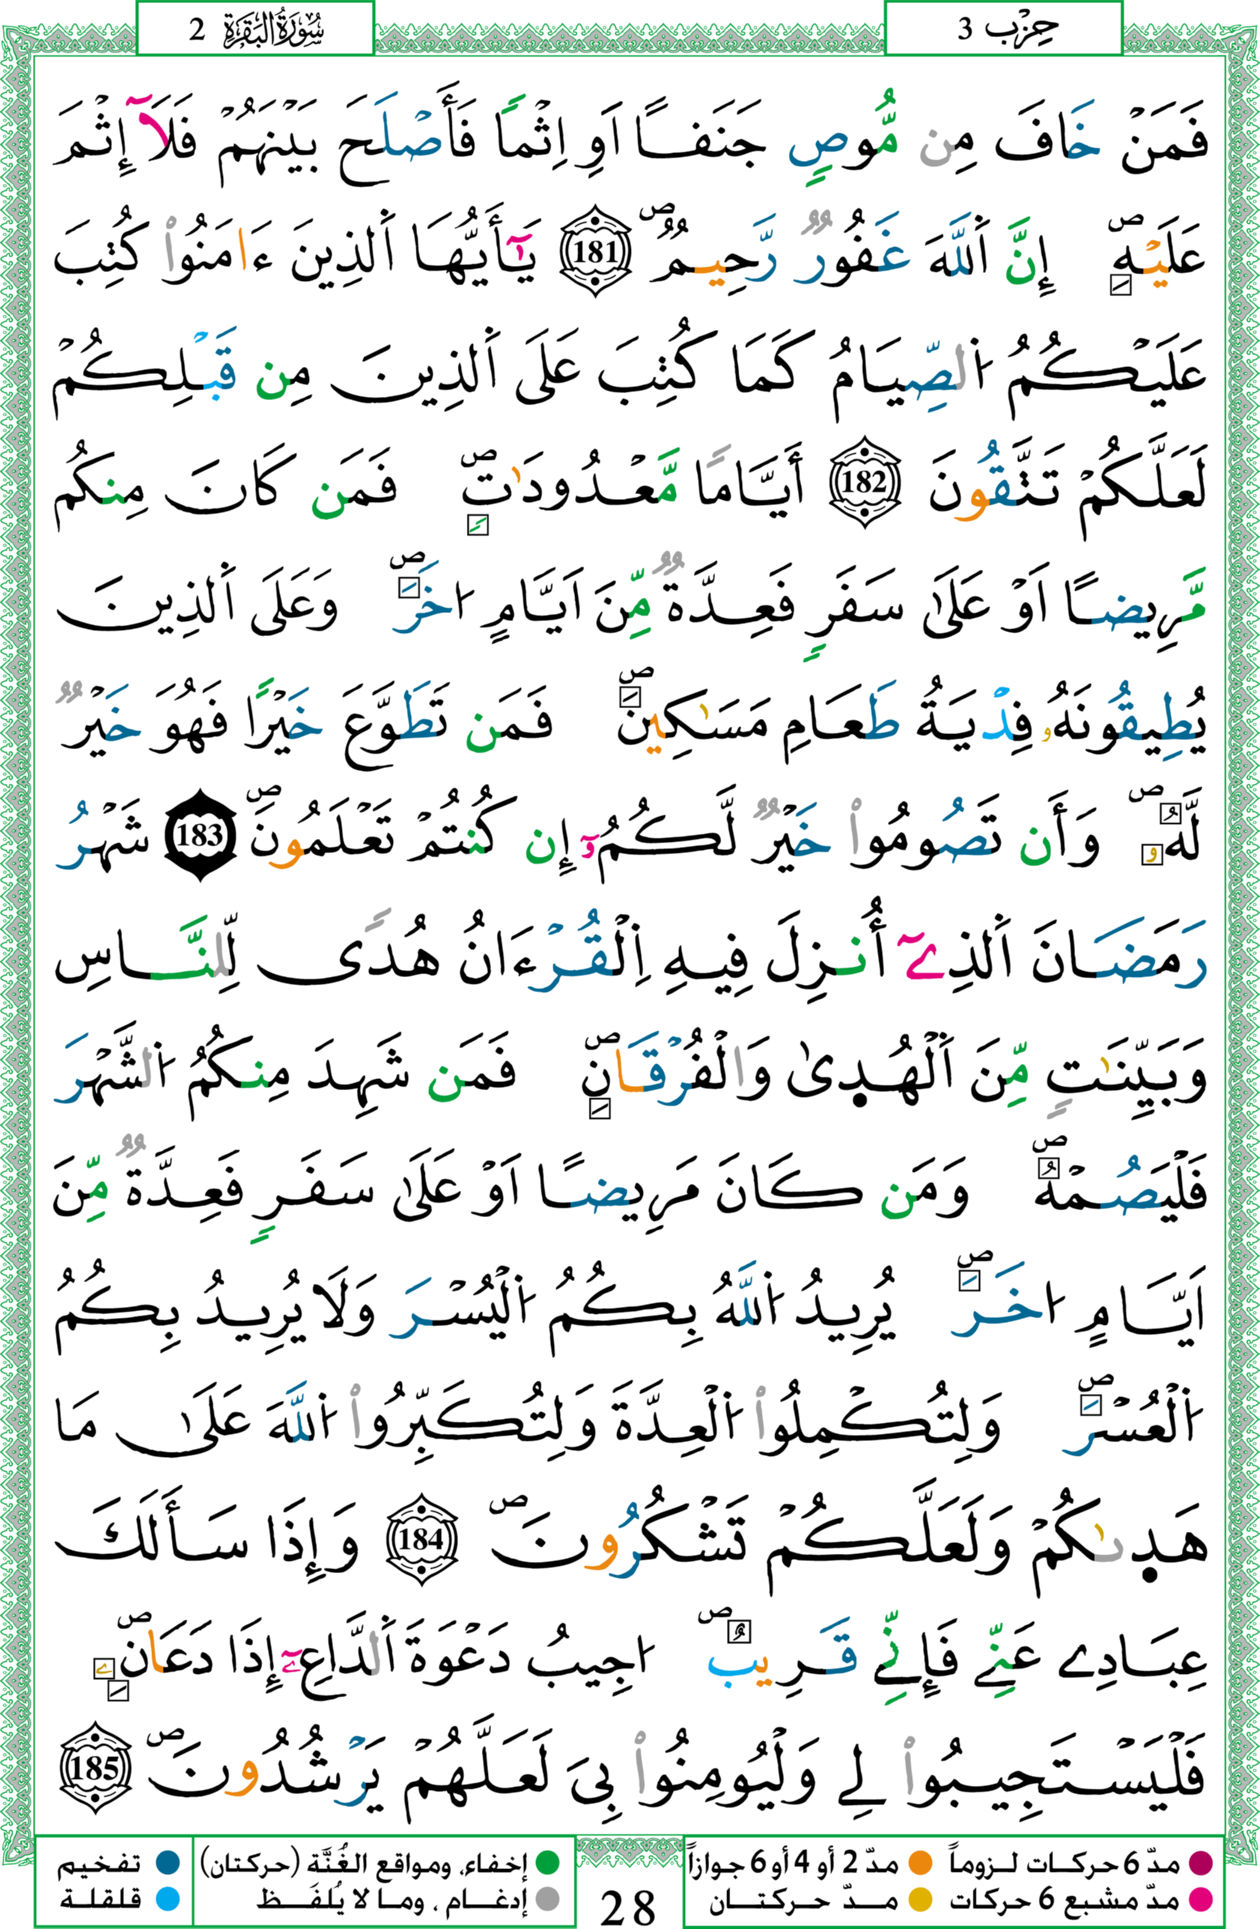 حِزْب 3
سُورَةُ البَقَرَةِ 2
فَمَنْ خَافَ مِن مُّوصٍ جَنَفًا اَوِ اِثْمًا فَأَصْلَحَ بَيْنَهُمْ فَلَآ إِثْمَ
عَلَيْهِۖ إِنَّ اَ۬للَّهَ غَفُورٌ رَّحِيمٌۖ 181 يَٰٓأَيُّهَا اَ۬لذِينَ ءَامَنُواْ كُتِبَ
عَلَيْكُمُ اُ۬لصِّيَامُ كَمَا كُتِبَ عَلَى اَ۬لذِينَ مِن قَبْلِكُمْ
لَعَلَّكُمْ تَتَّقُونَ 182 أَيَّامًا مَّعْدُودَٰتٍۖ فَمَن كَانَ مِنكُم
مَّرِيضًا اَوْ عَلَىٰ سَفَرٍ فَعِدَّةٌ مِّنَ اَيَّامٍ اُخَرَۖ وَعَلَى اَ۬لذِينَ
يُطِيقُونَهُۥ فِدْيَةُ طَعَامِ مَسَٰكِينَۖ فَمَن تَطَوَّعَ خَيْرًا فَهُوَ خَيْرٌ
لَّهُۥۖ وَأَن تَصُومُواْ خَيْرٌ لَّكُمُۥٓ إِن كُنتُمْ تَعْلَمُونَۖ 183 شَهْرُ
رَمَضَانَ اَ۬لذِےٓ أُنزِلَ فِيهِ اِ۬لْقُرْءَانُ هُدًى لِّلنَّاسِ
وَبَيِّنَٰتٍ مِّنَ اَ۬لْهُد۪ىٰ وَالْفُرْقَانِۖ فَمَن شَهِدَ مِنكُمُ اُ۬لشَّهْرَ
فَلْيَصُمْهُۖ وَمَن كَانَ مَرِيضًا اَوْ عَلَىٰ سَفَرٍ فَعِدَّةٌ مِّنَ
اَيَّامٍ اُخَرَۖ يُرِيدُ اُ۬للَّهُ بِكُمُ اُ۬لْيُسْرَ وَلَا يُرِيدُ بِكُمُ
اُ۬لْعُسْرَۖ وَلِتُكْمِلُواْ اُ۬لْعِدَّةَ وَلِتُكَبِّرُواْ اُ۬للَّهَ عَلَىٰ مَا
هَد۪ىٰكُمْ وَلَعَلَّكُمْ تَشْكُرُونَۖ 184 وَإِذَا سَأَلَكَ
عِبَادِے عَنِّے فَإِنِّے قَرِيبٌۖ اُجِيبُ دَعْوَةَ اَ۬لدَّاعِۦٓ إِذَا دَعَانِۦۖ
فَلْيَسْتَجِيبُواْ لِے وَلْيُومِنُواْ بِےَ لَعَلَّهُمْ يَرْشُدُونَۖ 185
مدّ 6 حركات لـزوماً مدّ 2 أو 4 أو 6 جوازاً
مدّ مشبع 6 حركات مـدّ حركتــان
28
إخفاء، ومواقع الغُنَّة (حركتان) تفخيم
إدغـام ، ومـا لا يُلفَـظ قلقلة